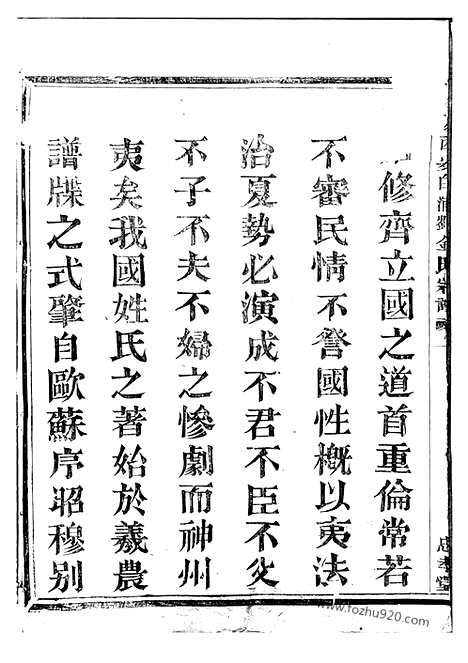 修齊立國之道首重倫常若
不審民情不詧國性概以夷法
治夏勢必演成不君不臣不父
不子不夫不婦之慘劇而神州
夷矣我國姓氏之著始於羲農
譜牒之式肇自歐蘇序昭穆别
www.fozhu920.com